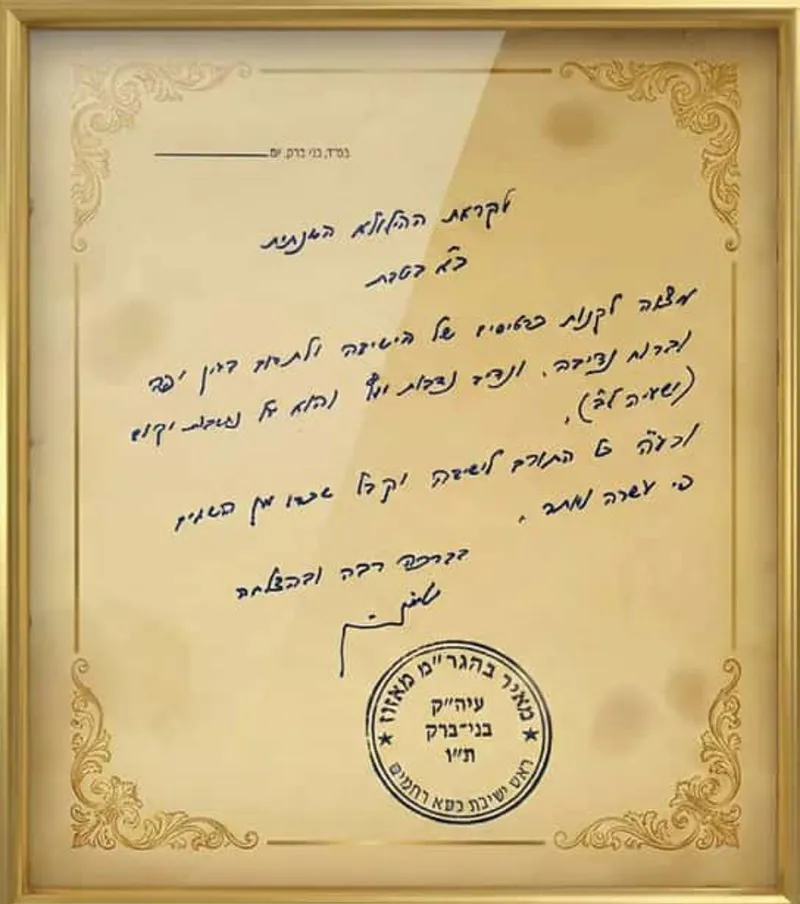 בס״ד, בני ברק, יום
לקראת ההילולא השנתית
כ״א בטבת
מצוה לקנות כרטיסים של הישיבה ולתרום בעין יפה
וברוח נדיבה. ונדיב נדבות יעץ והוא על נדיבות יקום
(ישעיה ל״ב).
ובע״ה כל התורם לישיבה יקבל שכרו מן השמים
פי עשרה ויותר.
בברכה רבה ובהצלחה
מאיר בהגר״מ מאזוז
עיה״ק
בני־ברק
ת״ו
ראש ישיבת כסא רחמים